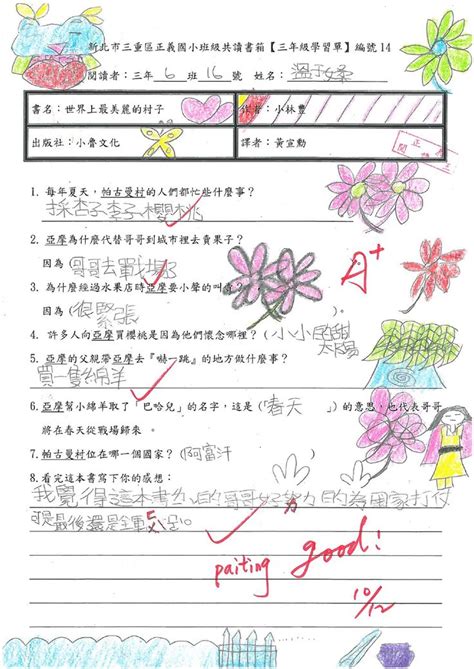 新北市三重區正義國小班級共讀書箱【三年級學習單】編號14
閱讀者：三年 6 班 16 號 姓名：溫
書名：世界上最美麗的村子
作者：小林豊
出版社：小魯文化
譯者：黃宣勳
1. 每年夏天，帕古曼村的人們都忙些什麼事？
採杏子李子櫻桃
2. 亞摩為什麼代替哥哥到城市裡去賣果子？
因為（哥哥去戰場了）。
3. 為什麼經過水果店時亞摩要小聲的叫賣？
因為（很緊張）。
4. 許多人向亞摩買櫻桃是因為他們懷念哪裡？（小小的甜太陽）
5. 亞摩的父親帶亞摩去『嚇一跳』的地方做什麼事？
買一隻綿羊
6. 亞摩幫小綿羊取了「巴哈兒」的名字，這是（春天）的意思，也代表哥哥
將在春天從戰場歸來。
7. 帕古曼村位在哪一個國家？（阿富汗）
8. 看完這本書寫下你的感想：
我覺得這本書的哥哥好努力的為國家打仗
可是最後還是
A+
paiting good!
10/12